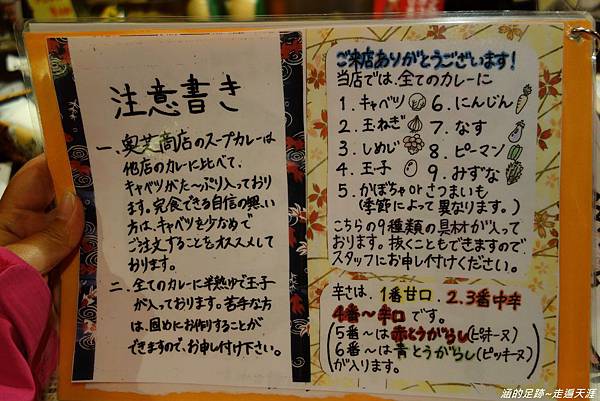 注意書き
一、奥芝商店のスープカレーは
他店のカレーに比べて、
キャベツがた〜ぷり入っており
ます。完食できる自信の無い
方は、キャベツを少なめで
ご注文することをオススメして
おります。
二、全てのカレーに半熟ゆで玉子
が入っております。苦手な方
は、固めにお作りすることが
できますので、お申し付け下さい。
ご来店ありがとうございます!
当店では、全てのカレーに
1. キャベツ 6. にんじん
2. 玉ねぎ 7. なす
3. しめじ 8. ピーマン
4. 玉子 9. みずな
5. かぼちゃorさつまいも
(季節によって異なります。)
こちらの9種類の具材が入って
おります。抜くこともできますので
スタッフにお申し付けください。
辛さは、1番甘口、2.3番中辛
4番〜辛口です。
(5番〜は赤とうがらし(ピキーヌ)
6番〜は青とうがらし(ピッキーヌ)
が入ります。)
涵的足跡~走遍天涯